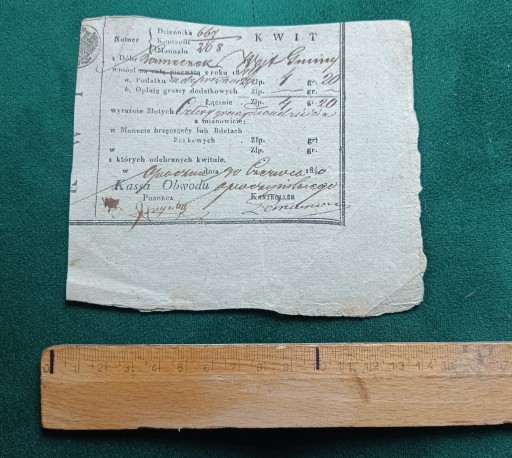 KWIT
Numer Dziennika 667
Kontrolli
Manuału 268
z Dóbr Wójt Gminy
wniosł na ratę z roku 18
a. Podatku Złp. 4 gr. 20
b. Opłatę groszy dodatkowych Złp. gr.
Łącznie . Złp. 4 gr. 20
wyraźnie Złotych Cztery groszy dwadzieścia
a mianowicie:
w Monecie brzęczącéy lub Biletach
Kassowych . Złp. gr:
w Złp. gr.
z których odebranych kwituie.
w Opocznie dnia 30 Czerwca 1840
Kassa Obwodu Opoczyńskiego
Poborca Kontroller
0 1 2 3 4 5 6 7 8 9 10 11 12 13 14 15 17